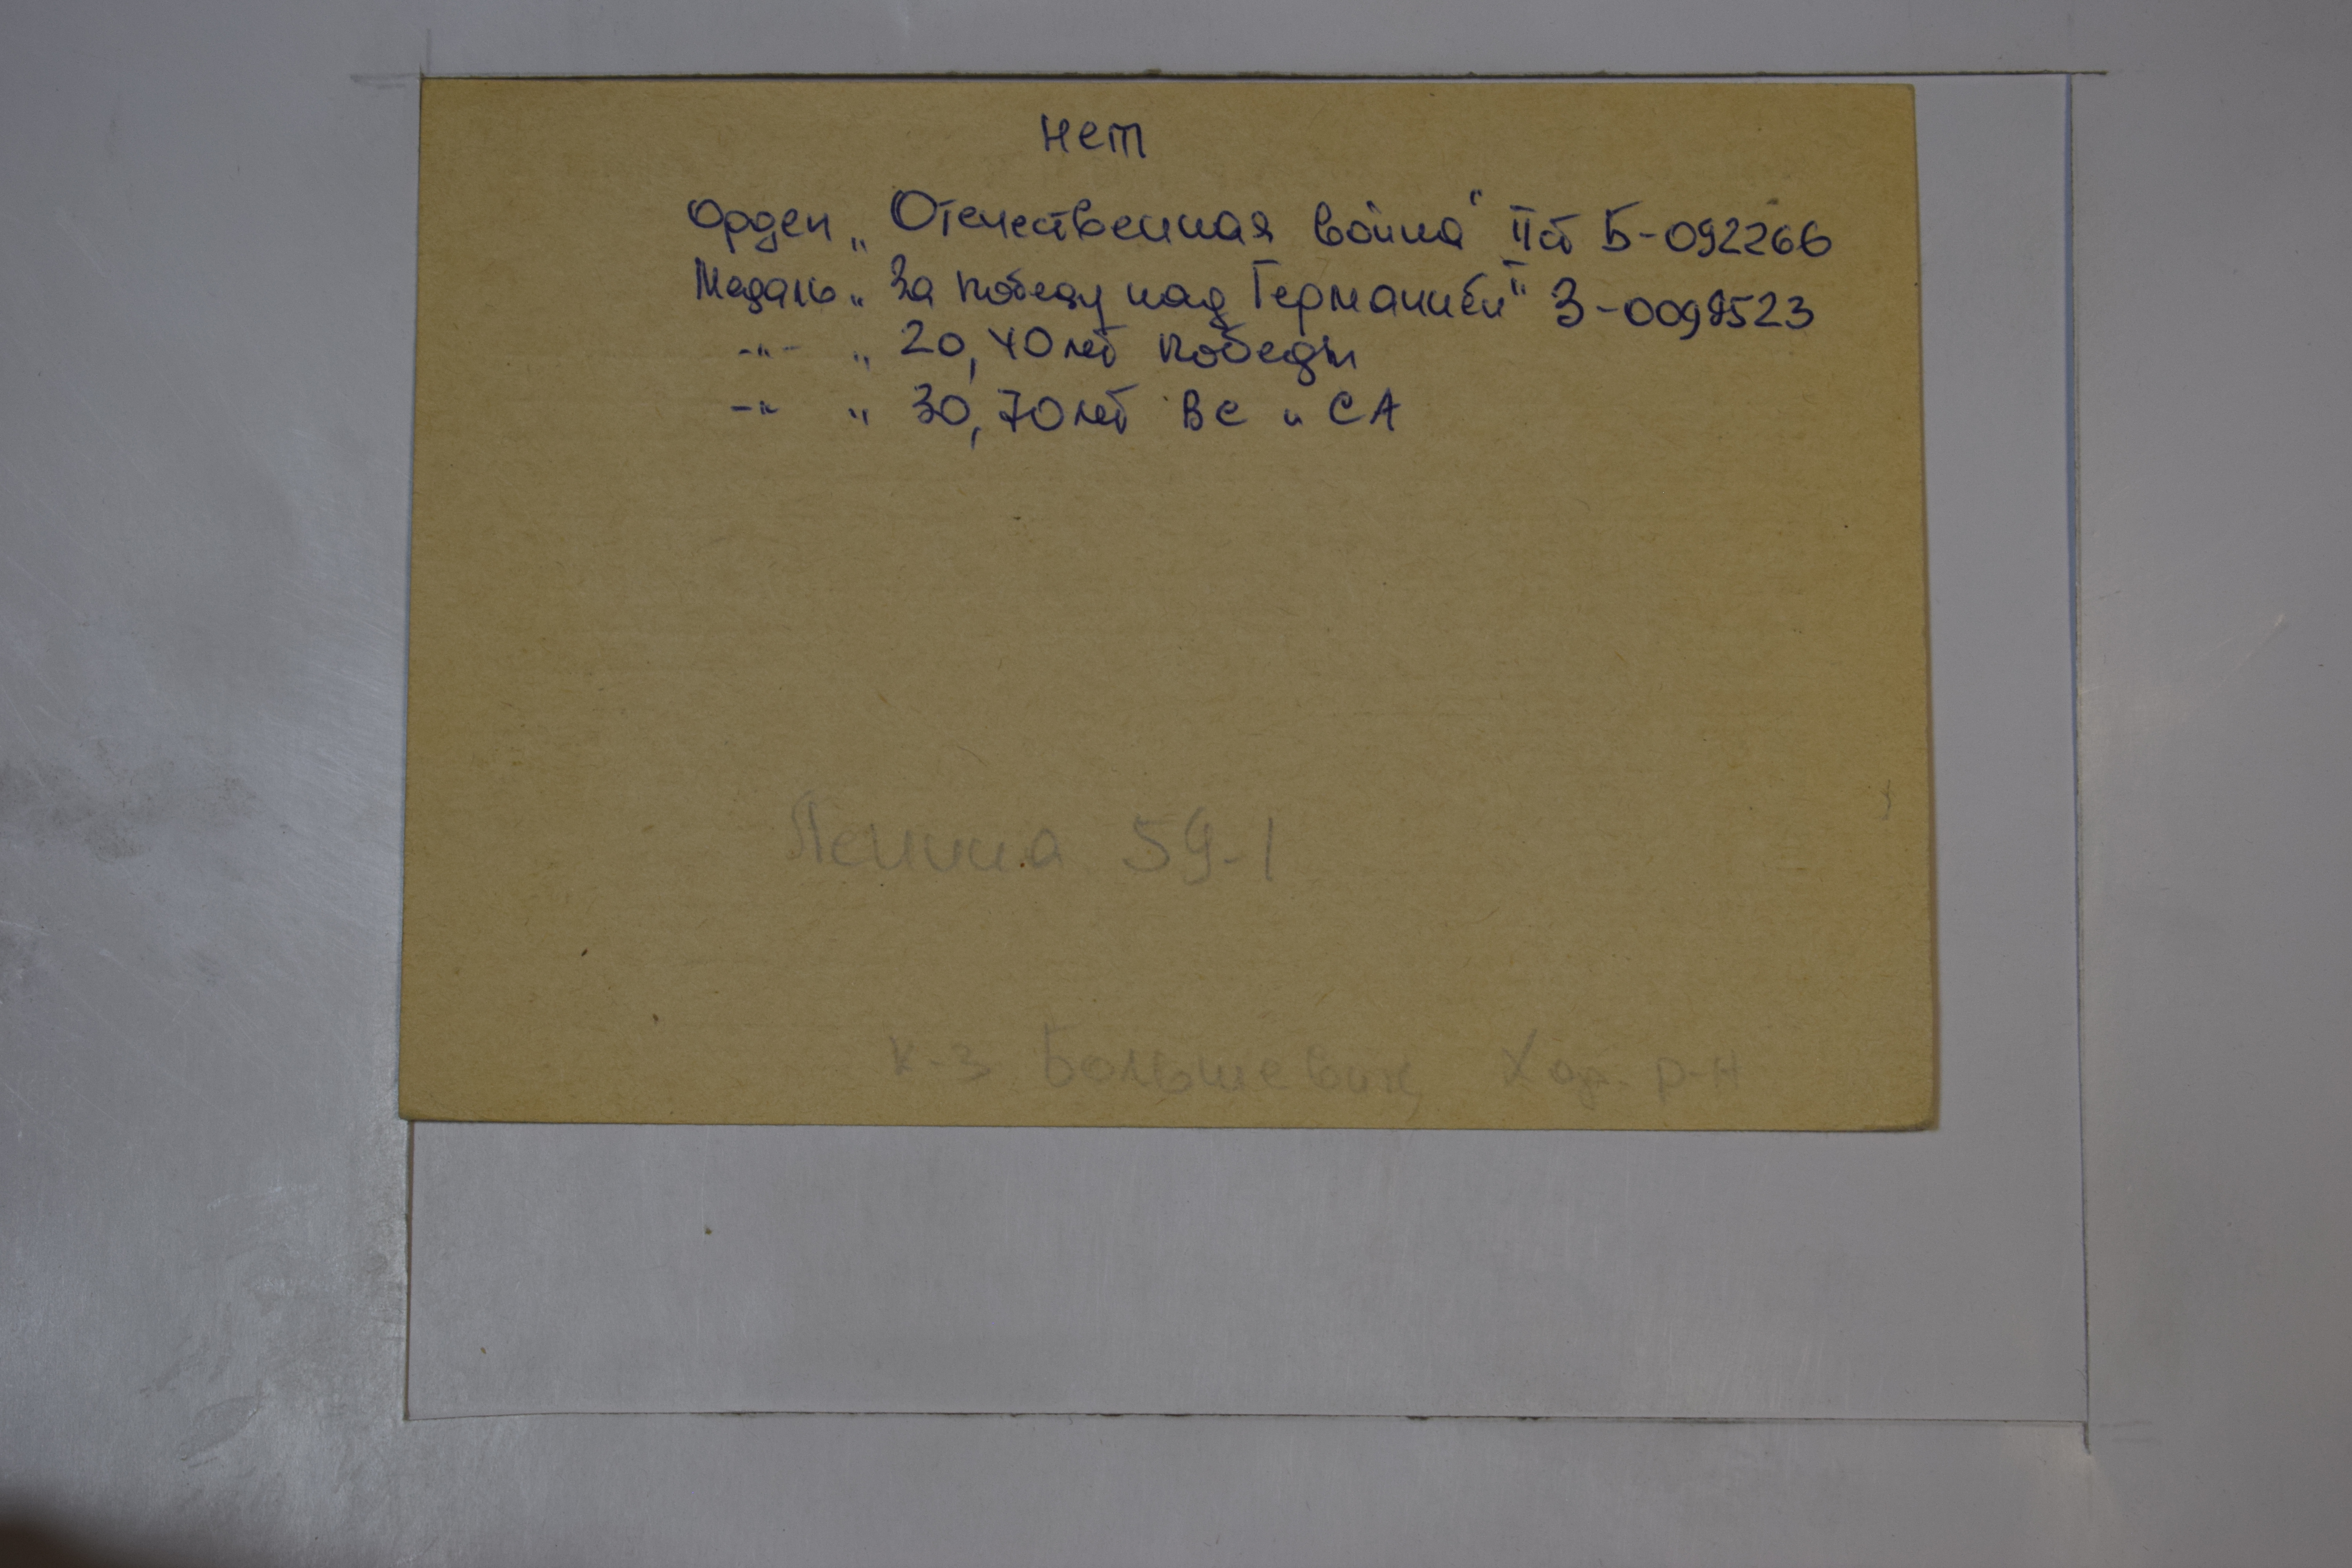 нет
Орден „ Отечественная война" II ст Б-092266
Медаль „ За победу над Германией" З-0098523
-"- „ 20, 40 лет победы
-"- „ 30, 70 лет ВС и СА
Ленина 59-1
к-з Большевик, Хар. р-н